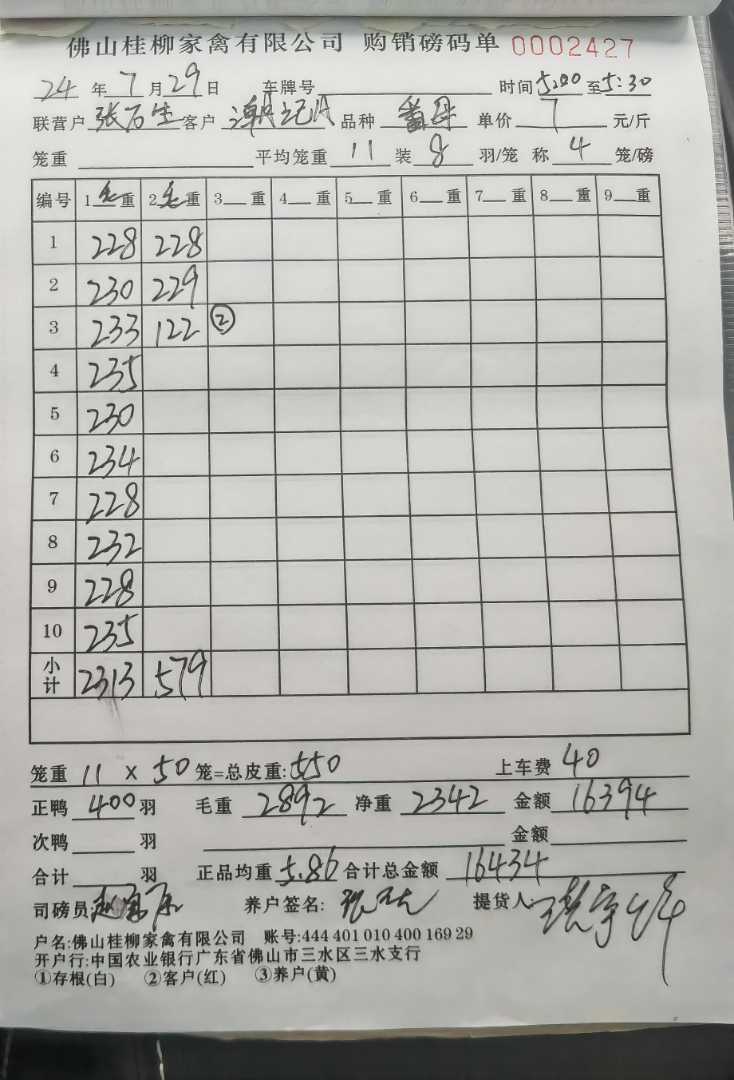 佛山桂柳家禽有限公司 购销磅码单 0002427
24 年 7 月 29 日 车牌号 时间 5:00 至 5:30
联营户 张石生 客户 潮记 品种 番 单价 7 元/斤
笼重 平均笼重 11 装 8 羽/笼 称 4 笼/磅
编号 1 毛 重 2 毛 重 3 重 4 重 5 重 6 重 7 重 8 重 9 重
1 228 228
2 230 229
3 233 122 ②
4 235
5 230
6 234
7 228
8 232
9 228
10 235
小计 2313 579
笼重 11 X 50 笼=总皮重: 550 上车费 40
正鸭 400 羽 毛重 2892 净重 2342 金额 16394
次鸭 羽 金额
合计 羽 正品均重 5.86 合计总金额 16434
司磅员 养户签名: 提货人
户名:佛山桂柳家禽有限公司 账号:444 401 010 400 169 29
开户行:中国农业银行广东省佛山市三水区三水支行
①存根(白) ②客户(红) ③养户(黄)